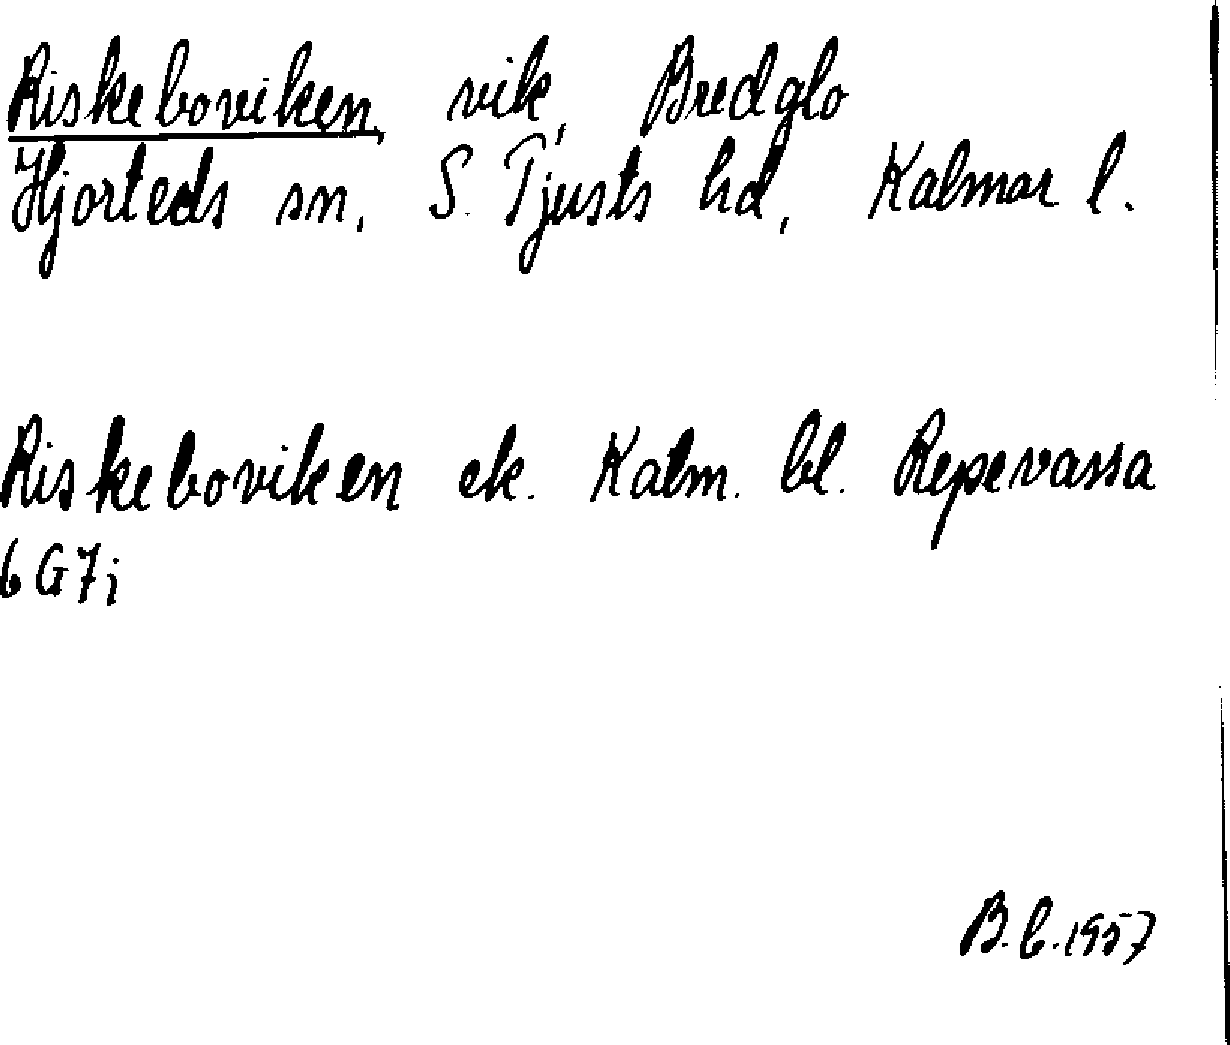 Riskeboviken, vik, Bredglo
Hjorteds sn, S. Tjusts hd, Kalmar l.
Riskeboviken ek. Kalm. bl. Repevassa
6 G7i
B.b.1957